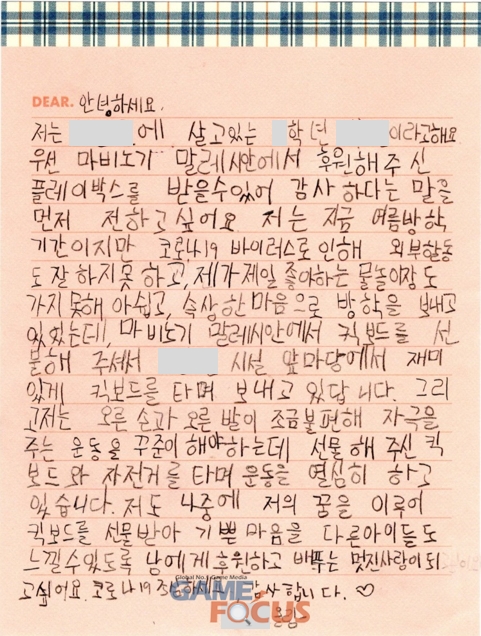 DEAR. 안녕하세요.
저는 에 살고있는 학년 이라고해요
우선 마비노기 말레시안에서 후원해주신
플레이박스를 받을수있어 감사 하다는 말을
먼저 전하고싶어요 저는 지금 여름방학
기간이지만 코로나19 바이러스로 인해 외부활동
도 잘 하지못 하고, 제가제일 좋아하는 물놀이장 도
가지 못해 아쉽고, 속상한마음으로 방학을 보내고
있었는데, 마비노기 말레시안에서 킥보드를 선
물해 주셔서 시설 앞마당에서 재미
있게 킥보드를 타며 보내고 있답니다. 그리
고저는 오른 손과 오른 발이 조금불편해 자극을
주는 운동을 꾸준이 해야하는데 선물해 주신 킥
보드와 자전거를 타며 운동을 열심히 하고
있습니다. 저도 나중에 저의 꿈을 이루어
킥보드를 선물받아 기쁠 마음을 다른아이들도
느낄수있도록 남에게후원하고 배푸는 멋진사람이되
고싶어요. 코로나19 감사합니다. ♡
Global No.1 Game Media
GAME
FOCUS